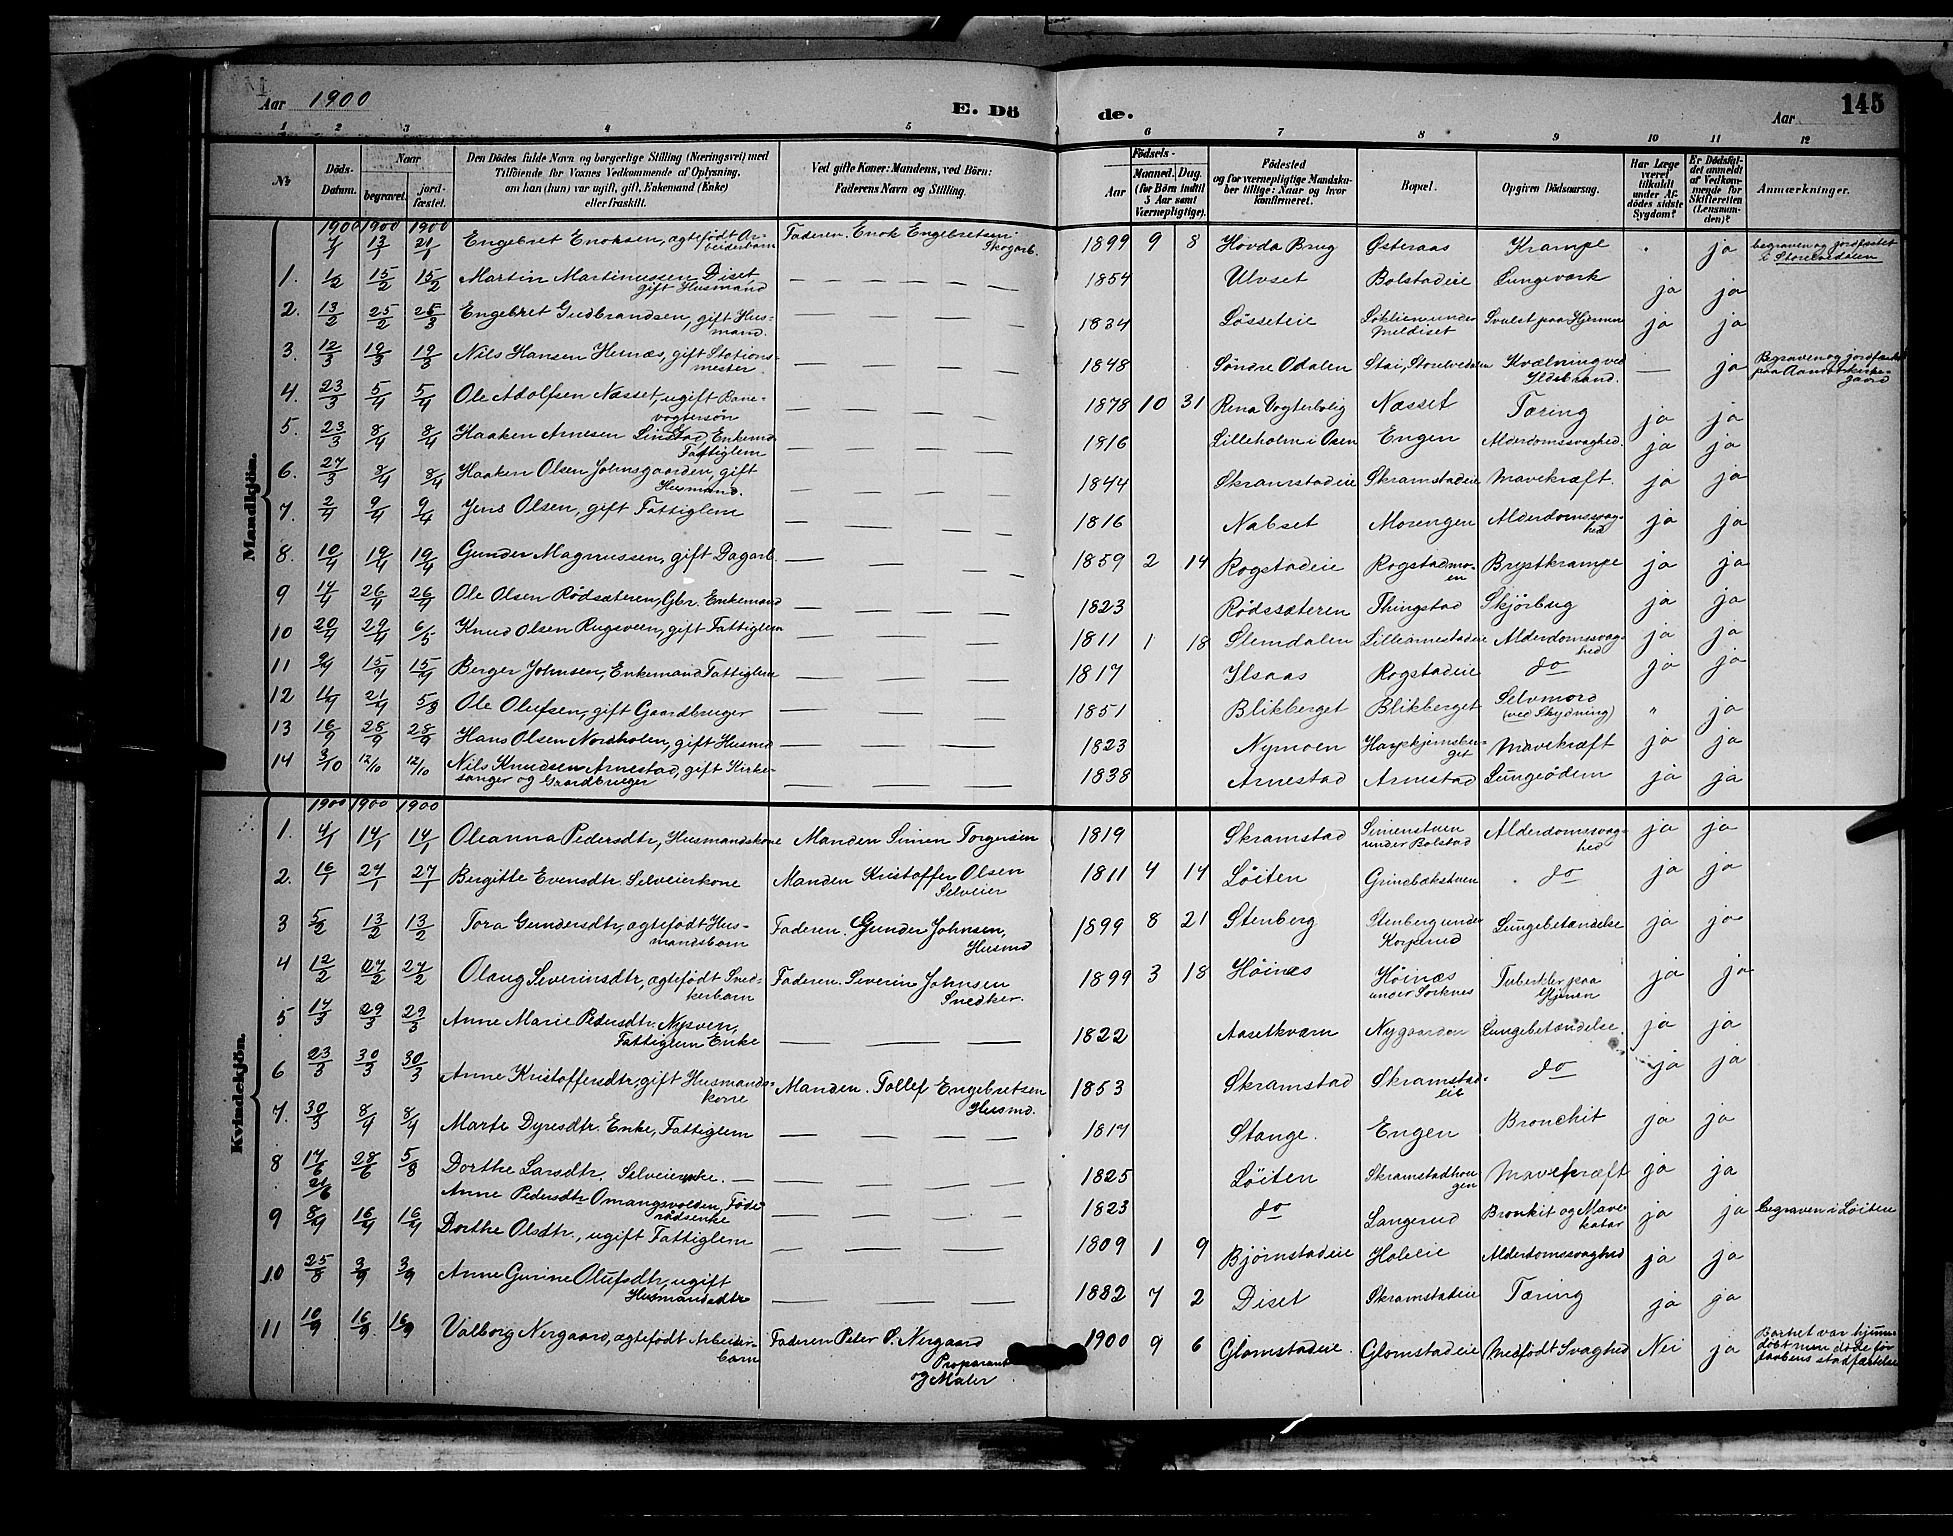 Aar 1900 E. Dö de. Aar 145
1 2 3 4 5 6 7 8 9 10 11 12
No. Döds-Datum. Naar begravet. jordfæstet. Den Dödes fulde Navn og borgerlige Stilling (Næringsvei) med Tilföiende for Voxnes Vedkommende af Oplysning, om han (hun) var ugift, gift, Enkemand (Enke) eller fraskilt. Ved gifte Koner: Mandens, ved Börn: Faderens Navn og Stilling. Födsels- Aar Maaned. Dag. (for Börn indtil 5 Aar samt Værnepligtige). Födested og for værnepligtige Mandskaber tillige: Naar og hvor konfirmeret. Bopæl. Opgiven Dödsaarsag. Har Læge været tilkaldt under Afdödes sidste Sygdom? Er Dödsfaldet anmeldt af Vedkommende for Skifteretten (Lensmanden)? Anmærkninger.
Mandkjön.
1900 1900 1900
7/1 13/1 21/1 Engebret Enoksen, ægtefödt Arbeiderbarn Faderen. Enok Engebretsen Skogarb. 1899 9 8 Hovda Brug Østeraas Krampe " ja begraven og jordfæstet i Storelvdalen
1. 1/2 15/2 15/2 Martin Martinussen Diset gift Husmand — 1854 Ulvset Bolstadeie Lungeværk ja ja
2. 13/2 25/2 25/3 Engebret Gudbrandsen, gift Husmand. — 1834 Løsseteie Løklien under Meldiset Svulst paa Hjernen ja ja
3. 12/3 19/3 19/3 Nils Hansen Hernæs, gift Stationsmester. — 1848 Søndre Odalen Stai, Storelvedalen Kvælning ved Ildebrand. — ja Begraven og jordfæstet paa Aamodt Kirkegaard
4. 23/3 5/4 5/4 Ole Adolfsen Næsset, ugift Banevogtersøn — 1878 10 31 Rena Vogterbolig Næsset Tæring ja ja
5. 23/3 8/4 8/4 Haaken Arnesen Linstad, Enkemd Fattiglem — 1816 Lilleholm i Osen Engen Alderdomssvaghed. ja ja
6. 27/3 8/4 8/4 Haaken Olsen Johnsgaarden, gift Husmand. — 1844 Skramstadeie Skramstadeie Mavekræft. ja ja
7. 2/4 9/4 9/4 Jens Olsen, gift Fattiglem — 1816 Nabset Morengen Alderdomssvaghed ja ja
8. 10/4 19/4 19/4 Gunder Magnussen, gift Dagarb. — 1859 2 14 Rogstadeie Rogstadmoen Brystkrampe ja ja
9 14/4 26/4 26/4 Ole Olsen Rödsæteren, Gbr. Enkemand — 1823 Rödssæteren Thingstad Skjörbug ja ja
10 20/4 29/4 6/5 Knud Olsen Rugsveen, gift Fattiglem — 1811 1 18 Slemdalen Lillearnestadeie Alderdomssvaghed ja ja
11 15/4 15/4 Berger Johnsen, Enkemand Fattiglem — 1817 Ilsaas Rogstadeie do ja ja
12 21/4 5/8 Ole Olufsen, gift Gaardbruger — 1851 Blikberget Blikberget Selvmord (ved Skydning) " ja
13 16/9 28/9 28/9 Hans Olsen Nordholen, gift Husmd — 1823 Nymoen Harpkjernsberget Mavekræft ja ja
14 3/10 12/10 12/10 Nils Knudsen Arnestad, gift Kirkesanger og Gaardbruger 1838 Arnestad Arnestad Lungeödem ja ja
Kvindekjön.
1900 1900 1900
1. 4/1 14/1 14/1 Oleanna Pedersdtr, Husmandskone Manden Simen Torgersen 1819 Skramstad Simenstuen under Bolstad Alderdomssvaghed ja ja
2. 16/1 27/1 27/1 Bergitte Evensdtr. Selveierkone Manden Kristoffer Olsen Selveier 1811 4 14 Löiten Grinebækstuen do ja ja
3 5/2 13/2 13/2 Tora Gundersdtr, ægtefödt Husmandsbarn Faderen. Gunder Johnsen, Husmd 1899 8 21 Stenberg Stenberg under Korperud Lungebetændelse ja ja
4 12/2 27/2 27/2 Olaug Severinsdtr, ægtefödt Snedkerbarn Faderen. Severin Johnsen Snedker. 1899 3 18 Höinæs Höinæs under Sorknes Tuberkler paa Hjernen ja ja
5 17/3 29/3 29/3 Anne Marie Pedersdtr. Nysven, Fattiglem Enke — 1822 Aasetkværn Nygaarden Lungebetændelse. ja ja
6 23/3 30/3 30/3 Anne Kristoffersdtr, gift Husmandskone Manden. Tollef Engebretsen Husmd. 1853 Skramstad Skramstadeie do ja ja
7. 30/3 8/4 8/4 Marte Dyresdtr. Enke, Fattiglem — 1817 Stange. Engen Bronchit ja ja
8 17/6 28/6 5/8 Dorthe Larsdtr, Selveierenke. — 1825 Löiten Skramstadhougen Mavekræft ja ja
21/6 Anne Pedersdtr Omangsvolden, Föderådsenke — 1823 do Langerud Bronkit og Mavekatar ja ja begraven i Löiten
9 16/4 16/4 Dorthe Olsdtr., ugift Fattiglem — 1809 1 9 Bjørnstadeie Holeie Alderdomssvaghed ja ja
10 25/8 3/9 3/9 Anne Gurine Olufsdtr, ugift Husmandsdtr — 1882 7 2 Diset Skramstadeie Tæring ja ja
11 10/9 16/9 16/9 Valborg Nergaard, ægtefödt Arbeiderbarn Faderen Peter O. Nergaard Preparant og Maler 1900 9 6 Glomstadeie. Glomstadeie Medfödt Svaghed Nei ja Barnet var hjemmedöbt men döde för daabens stadfæstelse